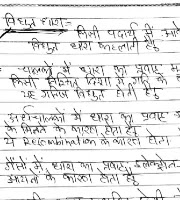 विद्युत धारा:-
किसी पदार्थ में आवे
विद्युत धारा कहलाती है
- चालकों में धारा का प्रवाह
किसी निश्चित दिशा में गति के
विद्युत होती है
अर्धचालकों में धारा का प्रवाह
के मिलने के कारण होता है
Recombination के कारण होता
गैसों में धारा का प्रवाह इलेक्ट्रॉन
आयनों के कारण होता है